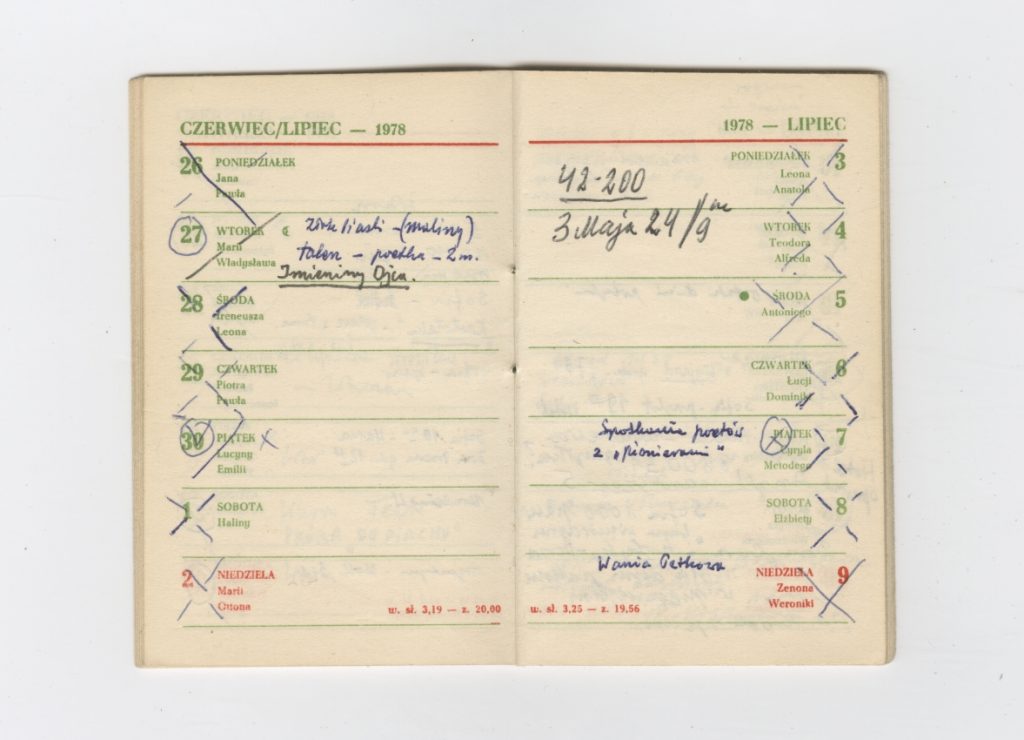 CZERWIEC/LIPIEC — 1978
26 PONIEDZIAŁEK
Jana
Pawła
27 WTOREK ☾
Marii
Władysława
(maliny)
poetka – 2 m.
Imieniny Ojca.
28 ŚRODA
Ireneusza
Leona
29 CZWARTEK
Piotra
Pawła
30 PIĄTEK x
Lucyny
Emilii
1 SOBOTA
Haliny
2 NIEDZIELA
Marii
Ottona
w. sł. 3,19 — z. 20,00
1978 — LIPIEC
PONIEDZIAŁEK 3
Leona
Anatola
42-200
3 Maja 24/9
WTOREK 4
Teodora
Alfreda
ŚRODA 5
Antoniego
CZWARTEK 6
Łucji
Dominika
PIĄTEK 7
Cyryla
Metodego
Spotkanie poetów
z „pionierami"
SOBOTA 8
Elżbiety
Wania Petkowa
NIEDZIELA 9
Zenona
Weroniki
w. sł. 3,25 — z. 19,56